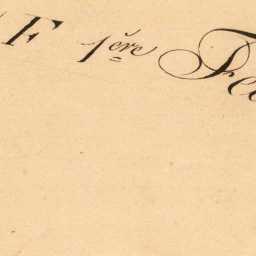 F 1ère Fe